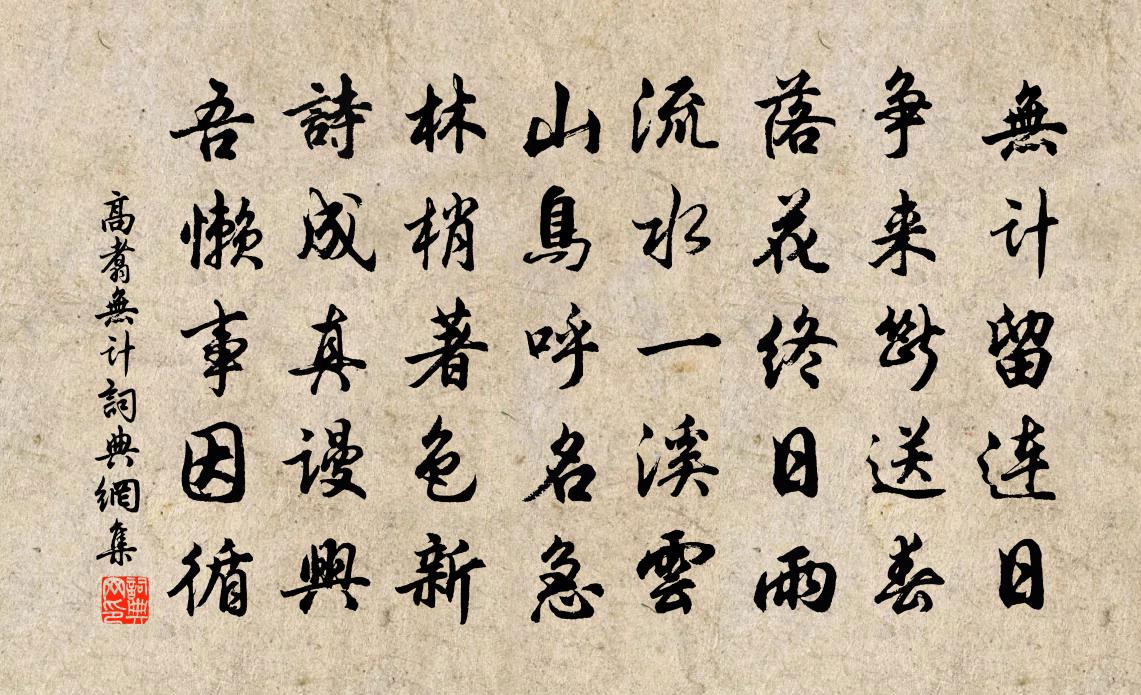 無計留連日
争来斷送春
落花終日雨
流水一溪雲
山鳥呼名急
林梢著色新
詩成真謾興
吾懶事因循
高翥無計詞典網集
詞典网印